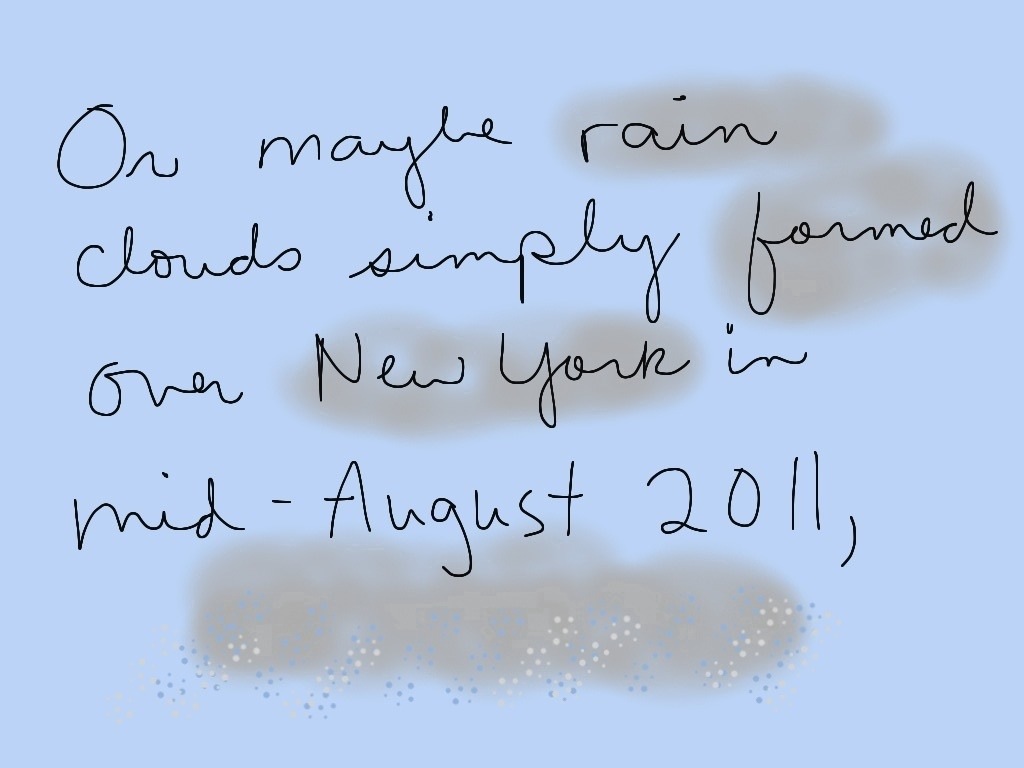 Or maybe rain
clouds simply formed
over New York in
mid-August 2011,